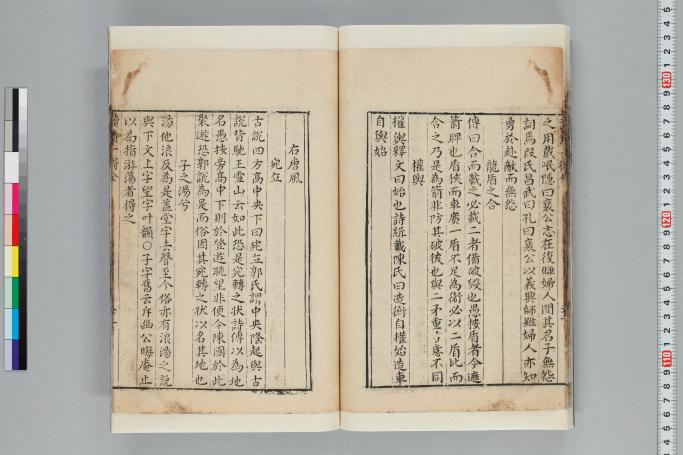 之用戴岷隱曰襄公志在復讎婦人閔其君子無怨
詞焉段氏昌武曰孔曰襄公以義興師雖婦人亦知
勇於赴敵而無怨
龍盾之合
傳曰合而載之必載二者備破毀也愚按盾者今遮
箭牌也盾狹而車廣一盾不足為衛必以二盾比而
合之乃是為箭非防其破彼也與二矛重弓意不同
權輿
權輿釋文曰始也詩緝載陳氏曰造衡自權始造車
自輿始
右唐風
宛丘
古說四方高中央下曰宛丘郭氏謂中央隆起與古
說皆馳王雪山云如此恐是宛轉之狀詩傳以為地
名愚按旁高中下則於登遊眺望非便今陳國於此
聚遊恐郭說為是而俗因其宛轉之狀以名其地也
子之湯兮
湯他浪反為是蓋堂字去聲至今俗亦有浪湯之說
與下文上字望字叶韻○子字舊云斥幽公晦庵止
以為指游蕩者得之